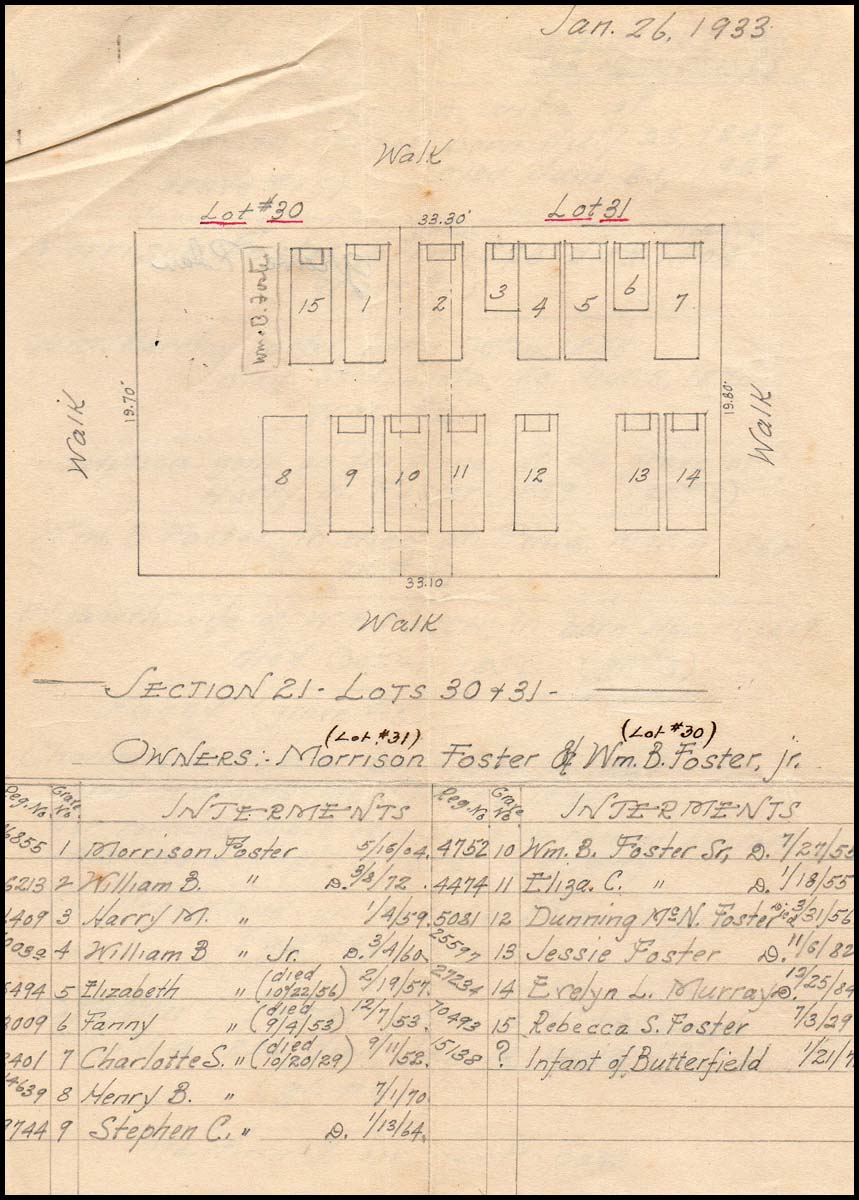 Jan. 26, 1933
Walk
Lot #30
33.30'
Lot 31
Wm. B. Foster
15
1
2
3
4
5
6
7
19.70'
Walk
19.80'
Walk
8
9
10
11
12
13
14
33.10
Walk
SECTION 21 - LOTS 30 & 31 -
(Lot #31)
(Lot #30)
OWNERS:- Morrison Foster & Wm. B. Foster, jr.
Reg. No Grave No. INTERMENTS Reg. No Grave No INTERMENTS
6855 1 Morrison Foster 5/16/04. 4752 10 Wm. B. Foster Sr, D. 7/27/55
6213 2 William B. " D. 3/8/72. 4474 11 Eliza. C. " D. 1/18/55
1409 3 Harry M. " 1/4/59. 5031 12 Dunning McN. Foster Died 3/31/56
4 William B " Jr. D. 3/4/60. 25597 13 Jessie Foster D. 11/6/82
5494 5 Elizabeth " (died 10/22/56) 2/19/57. 27234 14 Evelyn L. Murray D. 12/25/84
3009 6 Fanny " (died 9/4/53) 12/7/53. 70493 15 Rebecca S. Foster 7/3/29
2401 7 Charlotte S. " (died 10/20/29) 9/11/52. 15138 ? Infant of Butterfield 1/21/7
4639 8 Henry B. " 7/1/70.
9744 9 Stephen C. " D. 1/13/64.